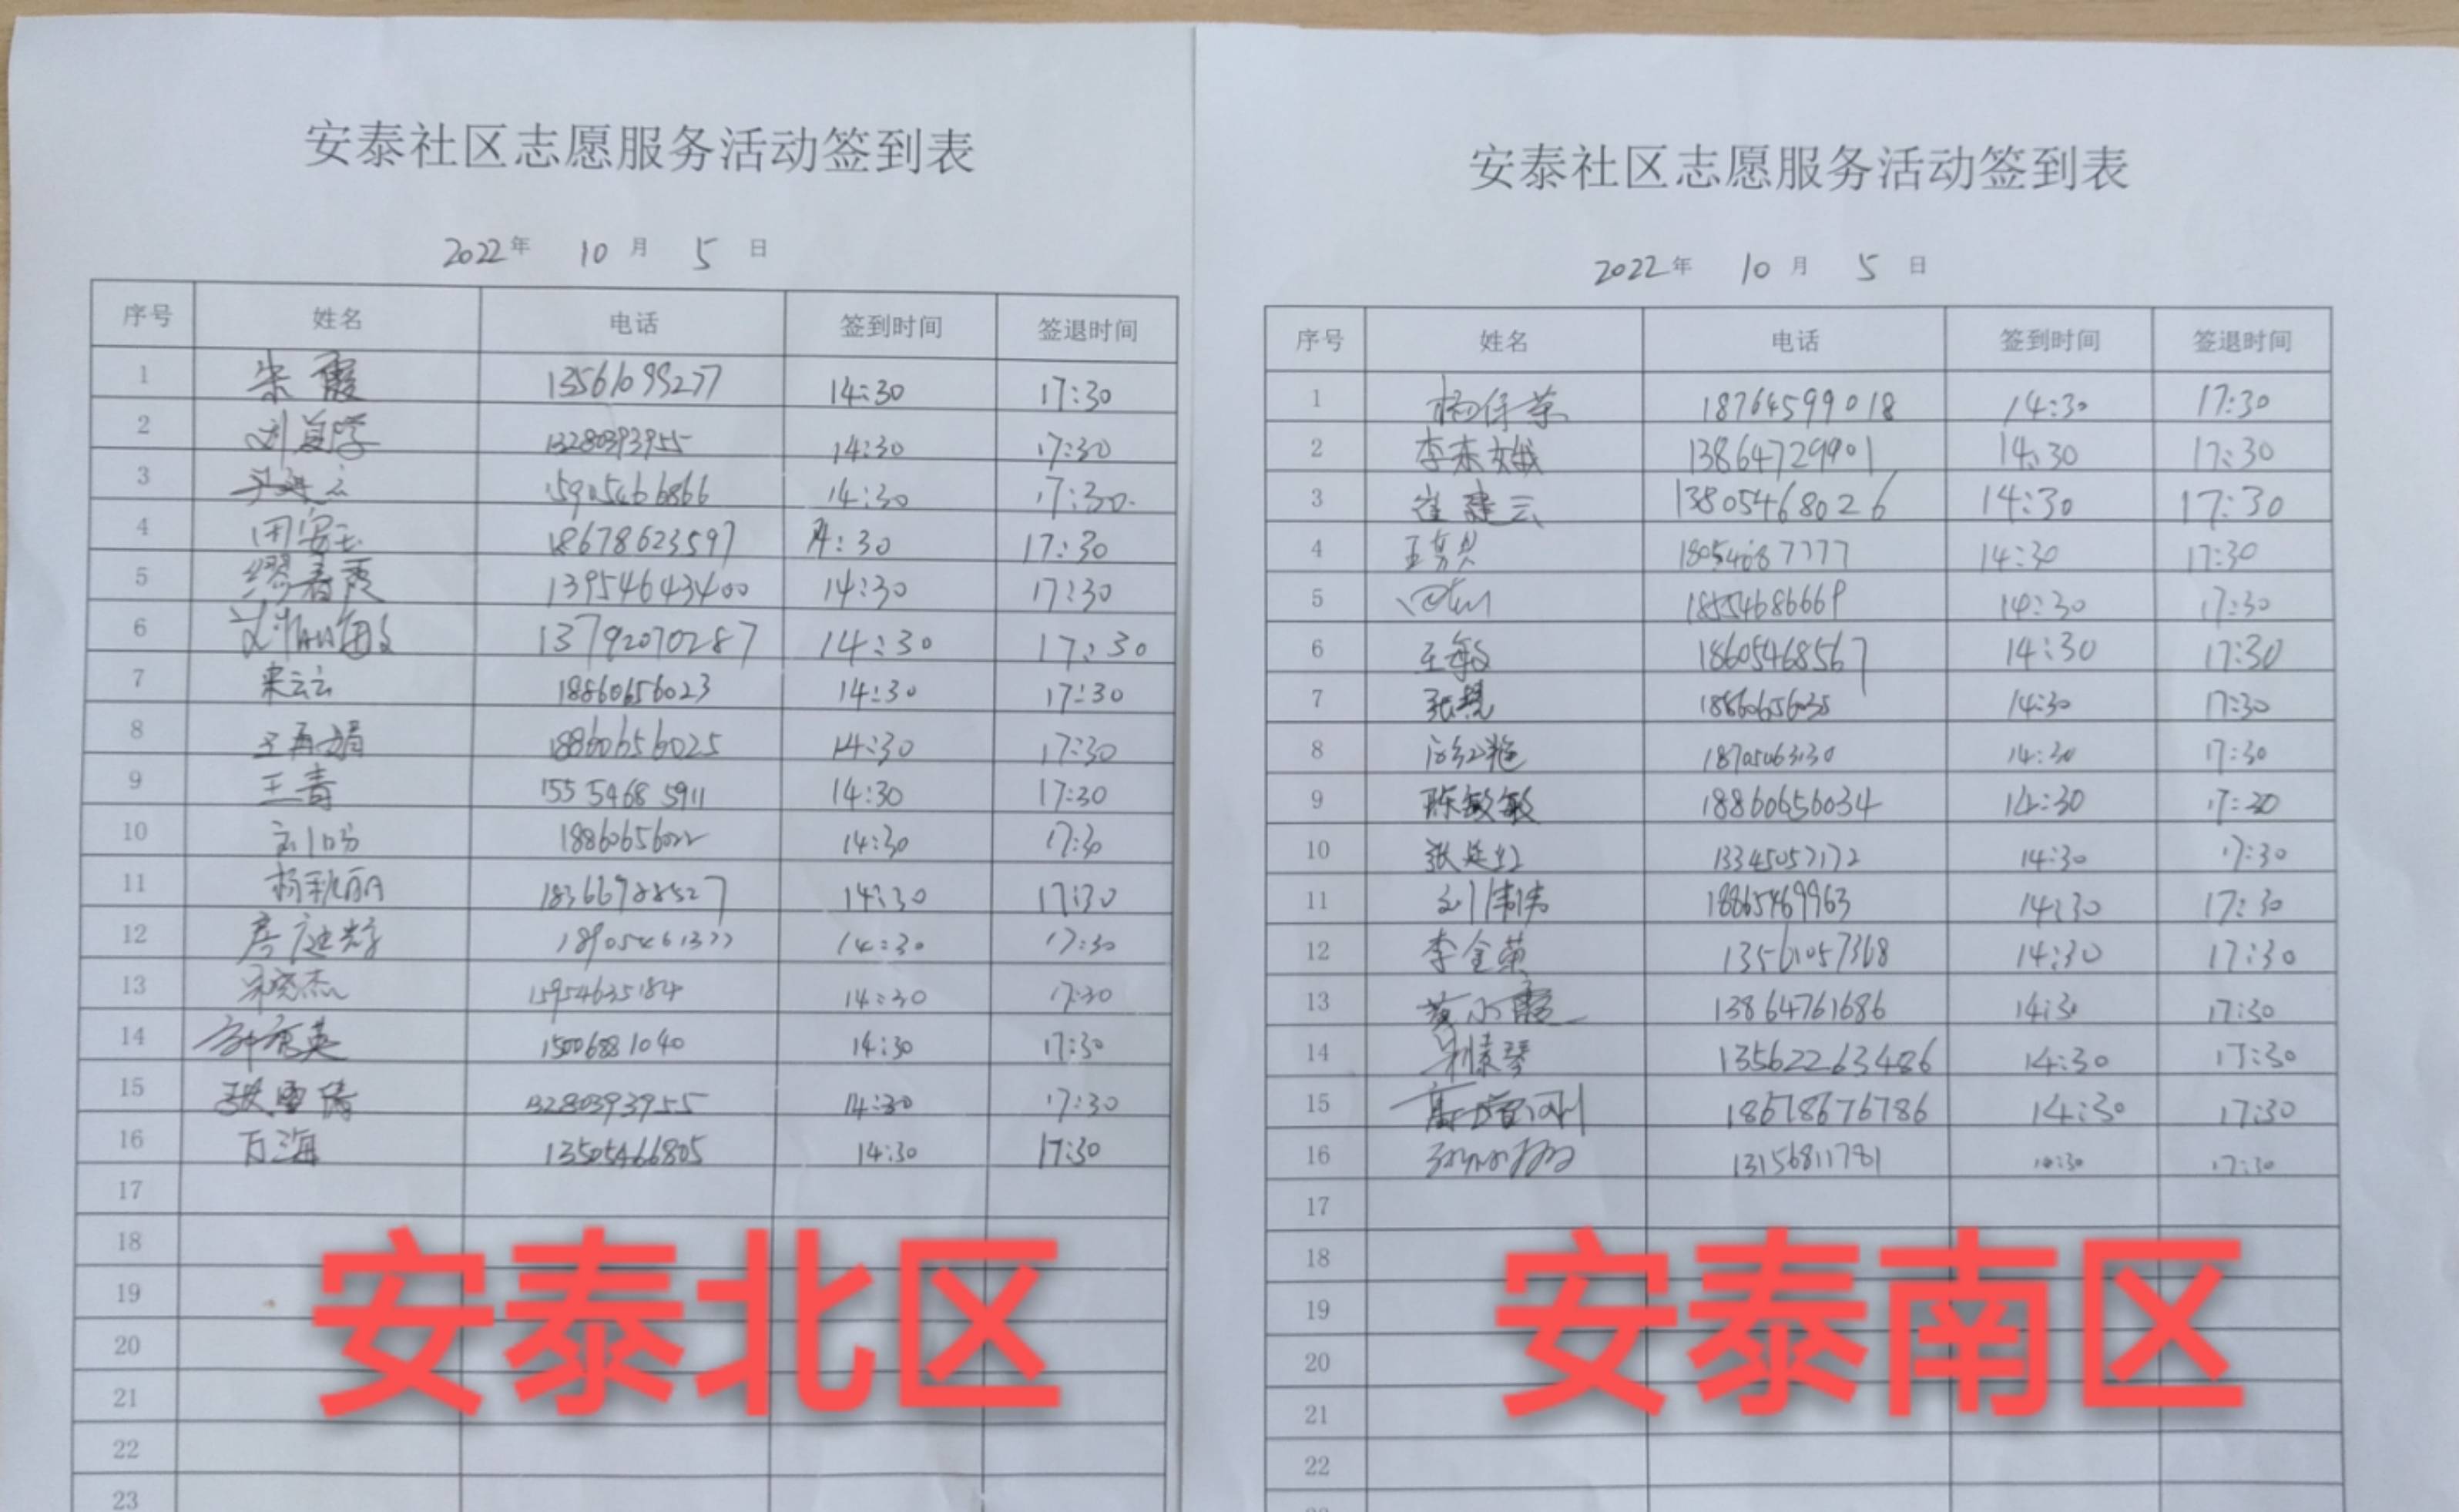 安泰社区志愿服务活动签到表
2022年 10月 5日
序号 姓名 电话 签到时间 签退时间
1 宋霞 13561099277 14:30 17:30
2 13280393955 14:30 17:30
3 15905466866 14:30 17:30
4 周安玉 18678623597 14:30 17:30
5 缪春霞 13954643400 14:30 17:30
6 13792070287 14:30 17:30
7 宋云云 18860656023 14:30 17:30
8 王再娟 18860656025 14:30 17:30
9 王青 15554685911 14:30 17:30
10 18860656022 14:30 17:30
11 杨秋丽 18366988527 14:30 17:30
12 18905461377 14:30 17:30
13 宋晓杰 15954635184 14:30 17:30
14 15006881040 14:30 17:30
15 张雪倩 13280393955 14:30 17:30
16 万海 13505466805 14:30 17:30
17
18
19
20
21
22
23
安泰北区
安泰社区志愿服务活动签到表
2022年 10月 5日
序号 姓名 电话 签到时间 签退时间
1 杨保荣 18764599018 14:30 17:30
2 李东娥 13864729901 14:30 17:30
3 崔建云 13805468026 14:30 17:30
4 18054687777 14:30 17:30
5 18554686669 14:30 17:30
6 王敏 18605468567 14:30 17:30
7 18860656035 14:30 17:30
8 18705063130 14:30 17:30
9 陈敏敏 18860656034 14:30 17:30
10 张廷红 13345057172 14:30 17:30
11 刘伟伟 18865469963 14:30 17:30
12 李金荣 13561057368 14:30 17:30
13 黄小霞 13864761686 14:30 17:30
14 13562263486 14:30 17:30
15 18678676786 14:30 17:30
16 13156811781 14:30 17:30
17
18
19
20
21
22
安泰南区